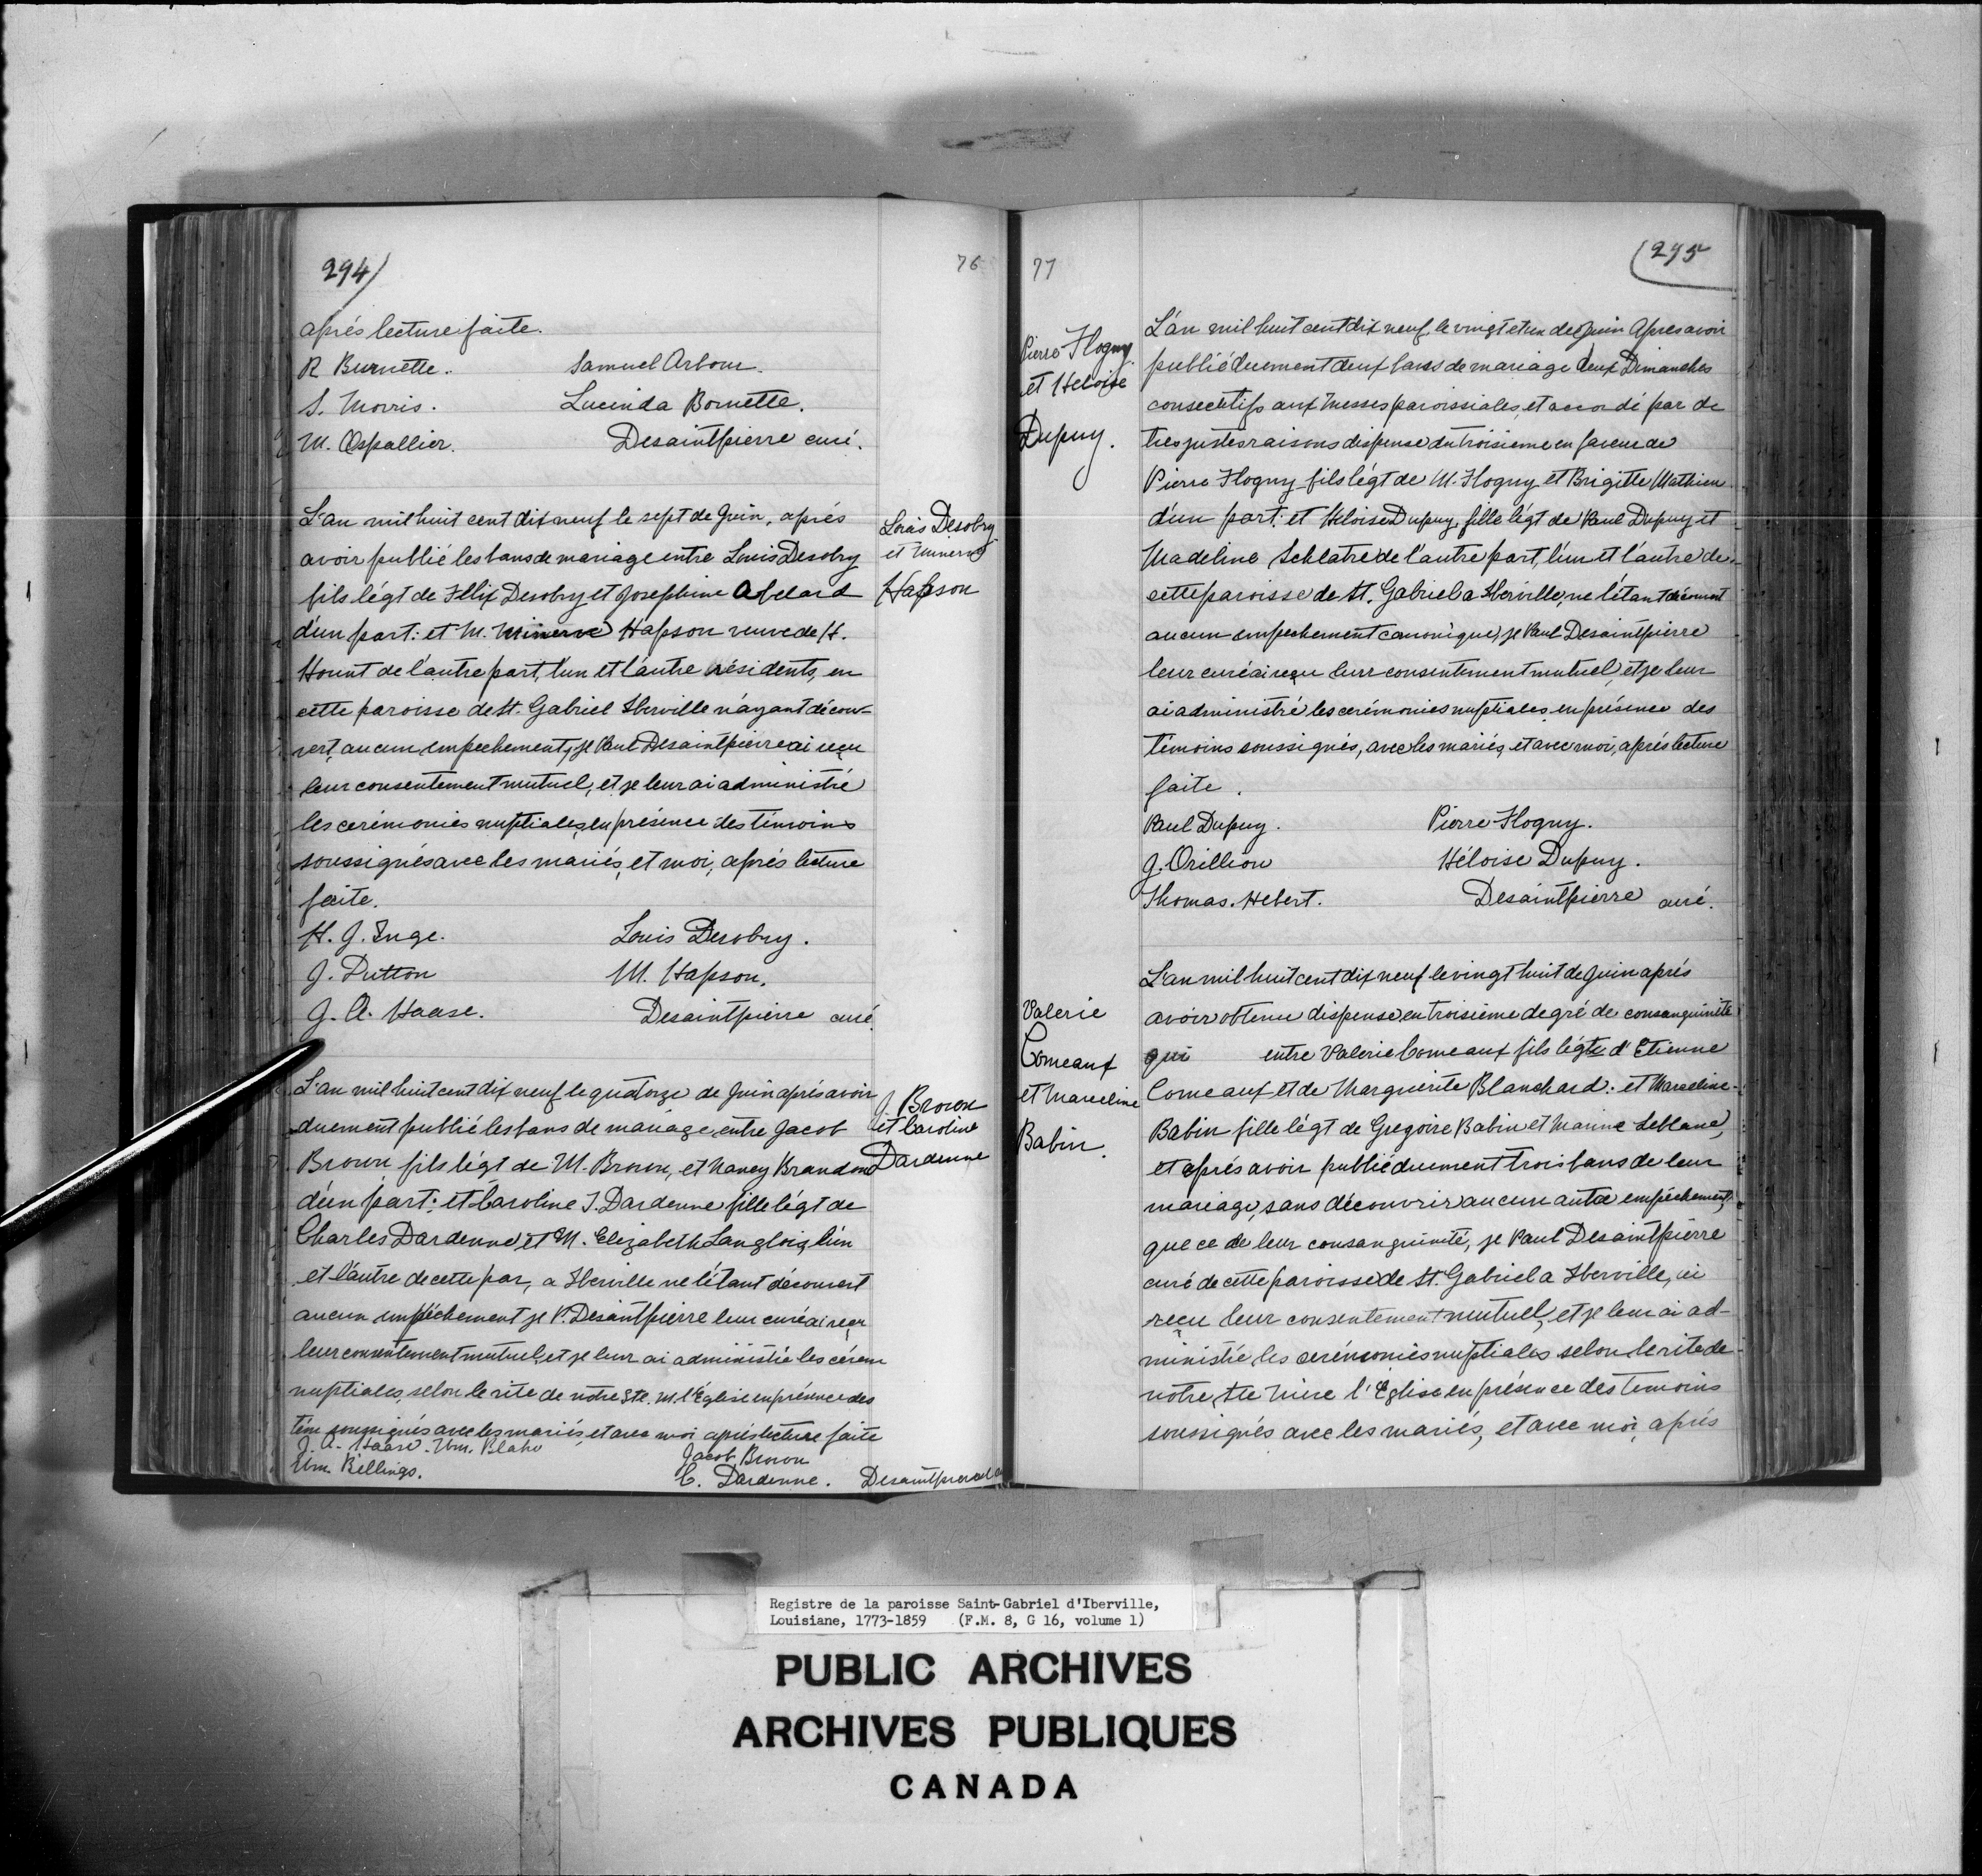 294/
76
après lecture faite.
R Burnette. Samuel Arbour.
S. Morris. Lucinda Bornette.
M. Ospallier. Desaintpierre curé.
L'an mil huit cent dix neuf le sept de Juin, après
avoir publié les bans de mariage entre Louis Desobry
fils légt de Félix Desobry et Josephine Abelard
d'un part: et M. Minerve Hapson veuve de H.
Hount de l'autre part, l'un et l'autre résidents, en
cette paroisse de St. Gabriel Iberville n'ayant décou-
vert, aucun empechement, je Paul Desaintpierre ai reçu
leur consentement mutuel, et je leur ai administré
les cerémonies nuptiales, en présence des témoins
soussignés avec les mariés, et moi, après lecture
faite.
Louis Desobry
et Minerve
Hapson
H. J. Inge. Louis Desobry.
J. Dutton M. Hapson.
J. A. Haase. Desaintpierre curé.
L'an mil huit cent dix neuf le quatorze de Juin après avoir
duement publié les bans de mariage, entre Jacob
Brown fils légt de M. Brown, et Nancy Brandon
d'un part; et Caroline T. Dardenne fille légt de
Charles Dardenne et M. Elizabeth Langlois, l'un
et l'autre de cette par, a Iberville ne l'étant découvert
aucun empêchement je P. Desaintpierre leur curé ai reçu
leur consentement mutuel, et je leur ai administré les cérem
nuptiales, selon le rite de notre Ste. M. l'Église en présence des
tém soussignés avec les mariés, et avec moi après lecture faite
J. Brown
et Caroline
Dardenne
J. A. Haase. Wm. Blahe Jacob Brown
Wm. Billings. C. Dardenne. Desaintpierre
77
(295
Pierre Flogny
et Heloise
Dupuy.
L'an mil huit cent dix neuf, le vingt et un de Juin Apres avoir
publié duement deux bans de mariage deux Dimanches
consecutifs aux Messes paroissiales, et accordé par de
tres justes raisons dispense du troisieme en faveur de
Pierre Flogny fils légt de M. Flogny et Brigitte Mathieu
d'un part: et Heloise Dupuy, fille légt de Paul Dupuy et
Madeline Schlatre de l'autre part, l'un et l'autre de
cette paroisse de St. Gabriel a Iberville, ne l'étant découvert
aucun empechement canonique, je Paul Desaintpierre
leur curé ai reçu leur consentement mutuel, et je leur
ai administré les cerémonies nuptiales, en présence des
témoins soussignés, avec les mariés, et avec moi, après lecture
faite.
Paul Dupuy. Pierre Flogny.
J. Orillion Héloise Dupuy.
Thomas. Hebert. Desaintpierre curé.
Valerie
Comeaux
et Marceline
Babin.
L'an mil huit cent dix neuf le vingt huit de Juin après
avoir obtenu dispense en troisieme degré de consanguinité
qui entre Valerie Comeaux fils légte d'Etienne
Comeaux et de Marguerite Blanchard: et Marceline
Babin fille légt de Gregoire Babin et Marine Leblanc,
et après avoir publié duement trois bans de leur
mariage, sans découvrir aucun autre empêchement,
que ce de leur consanguinité, je Paul Desaintpierre
curé de cette paroisse de St. Gabriel a Iberville, ai
reçu leur consentement mutuel, et je leur ai ad-
ministré les cerémonies nuptiales selon le rite de
notre Ste Mère l'Eglise en présence des temoins
soussignés avec les mariés, et avec moi, après
Registre de la paroisse Saint-Gabriel d'Iberville,
Louisiane, 1773-1859 (F.M. 8, G 16, volume 1)
PUBLIC ARCHIVES
ARCHIVES PUBLIQUES
CANADA